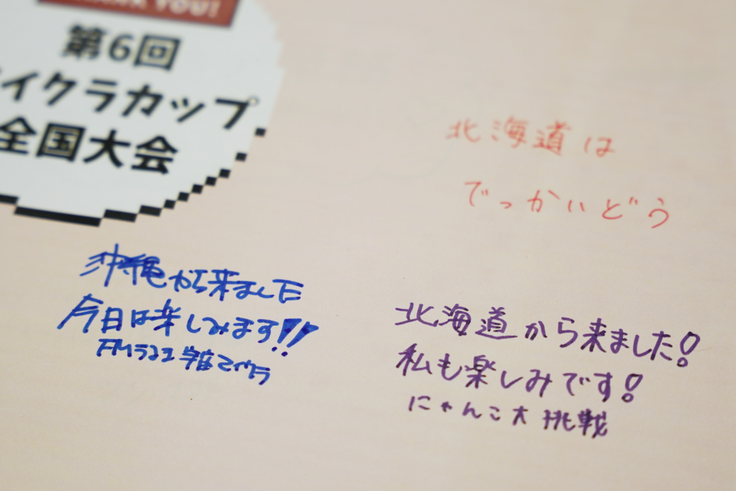 THANK YOU!
第6回
イクラカップ
全国大会
北海道は
でっかいどう
沖縄から来ました
今日は楽しみます!!
北海道から来ました!
私も楽しみです!
にゃんこ大挑戦